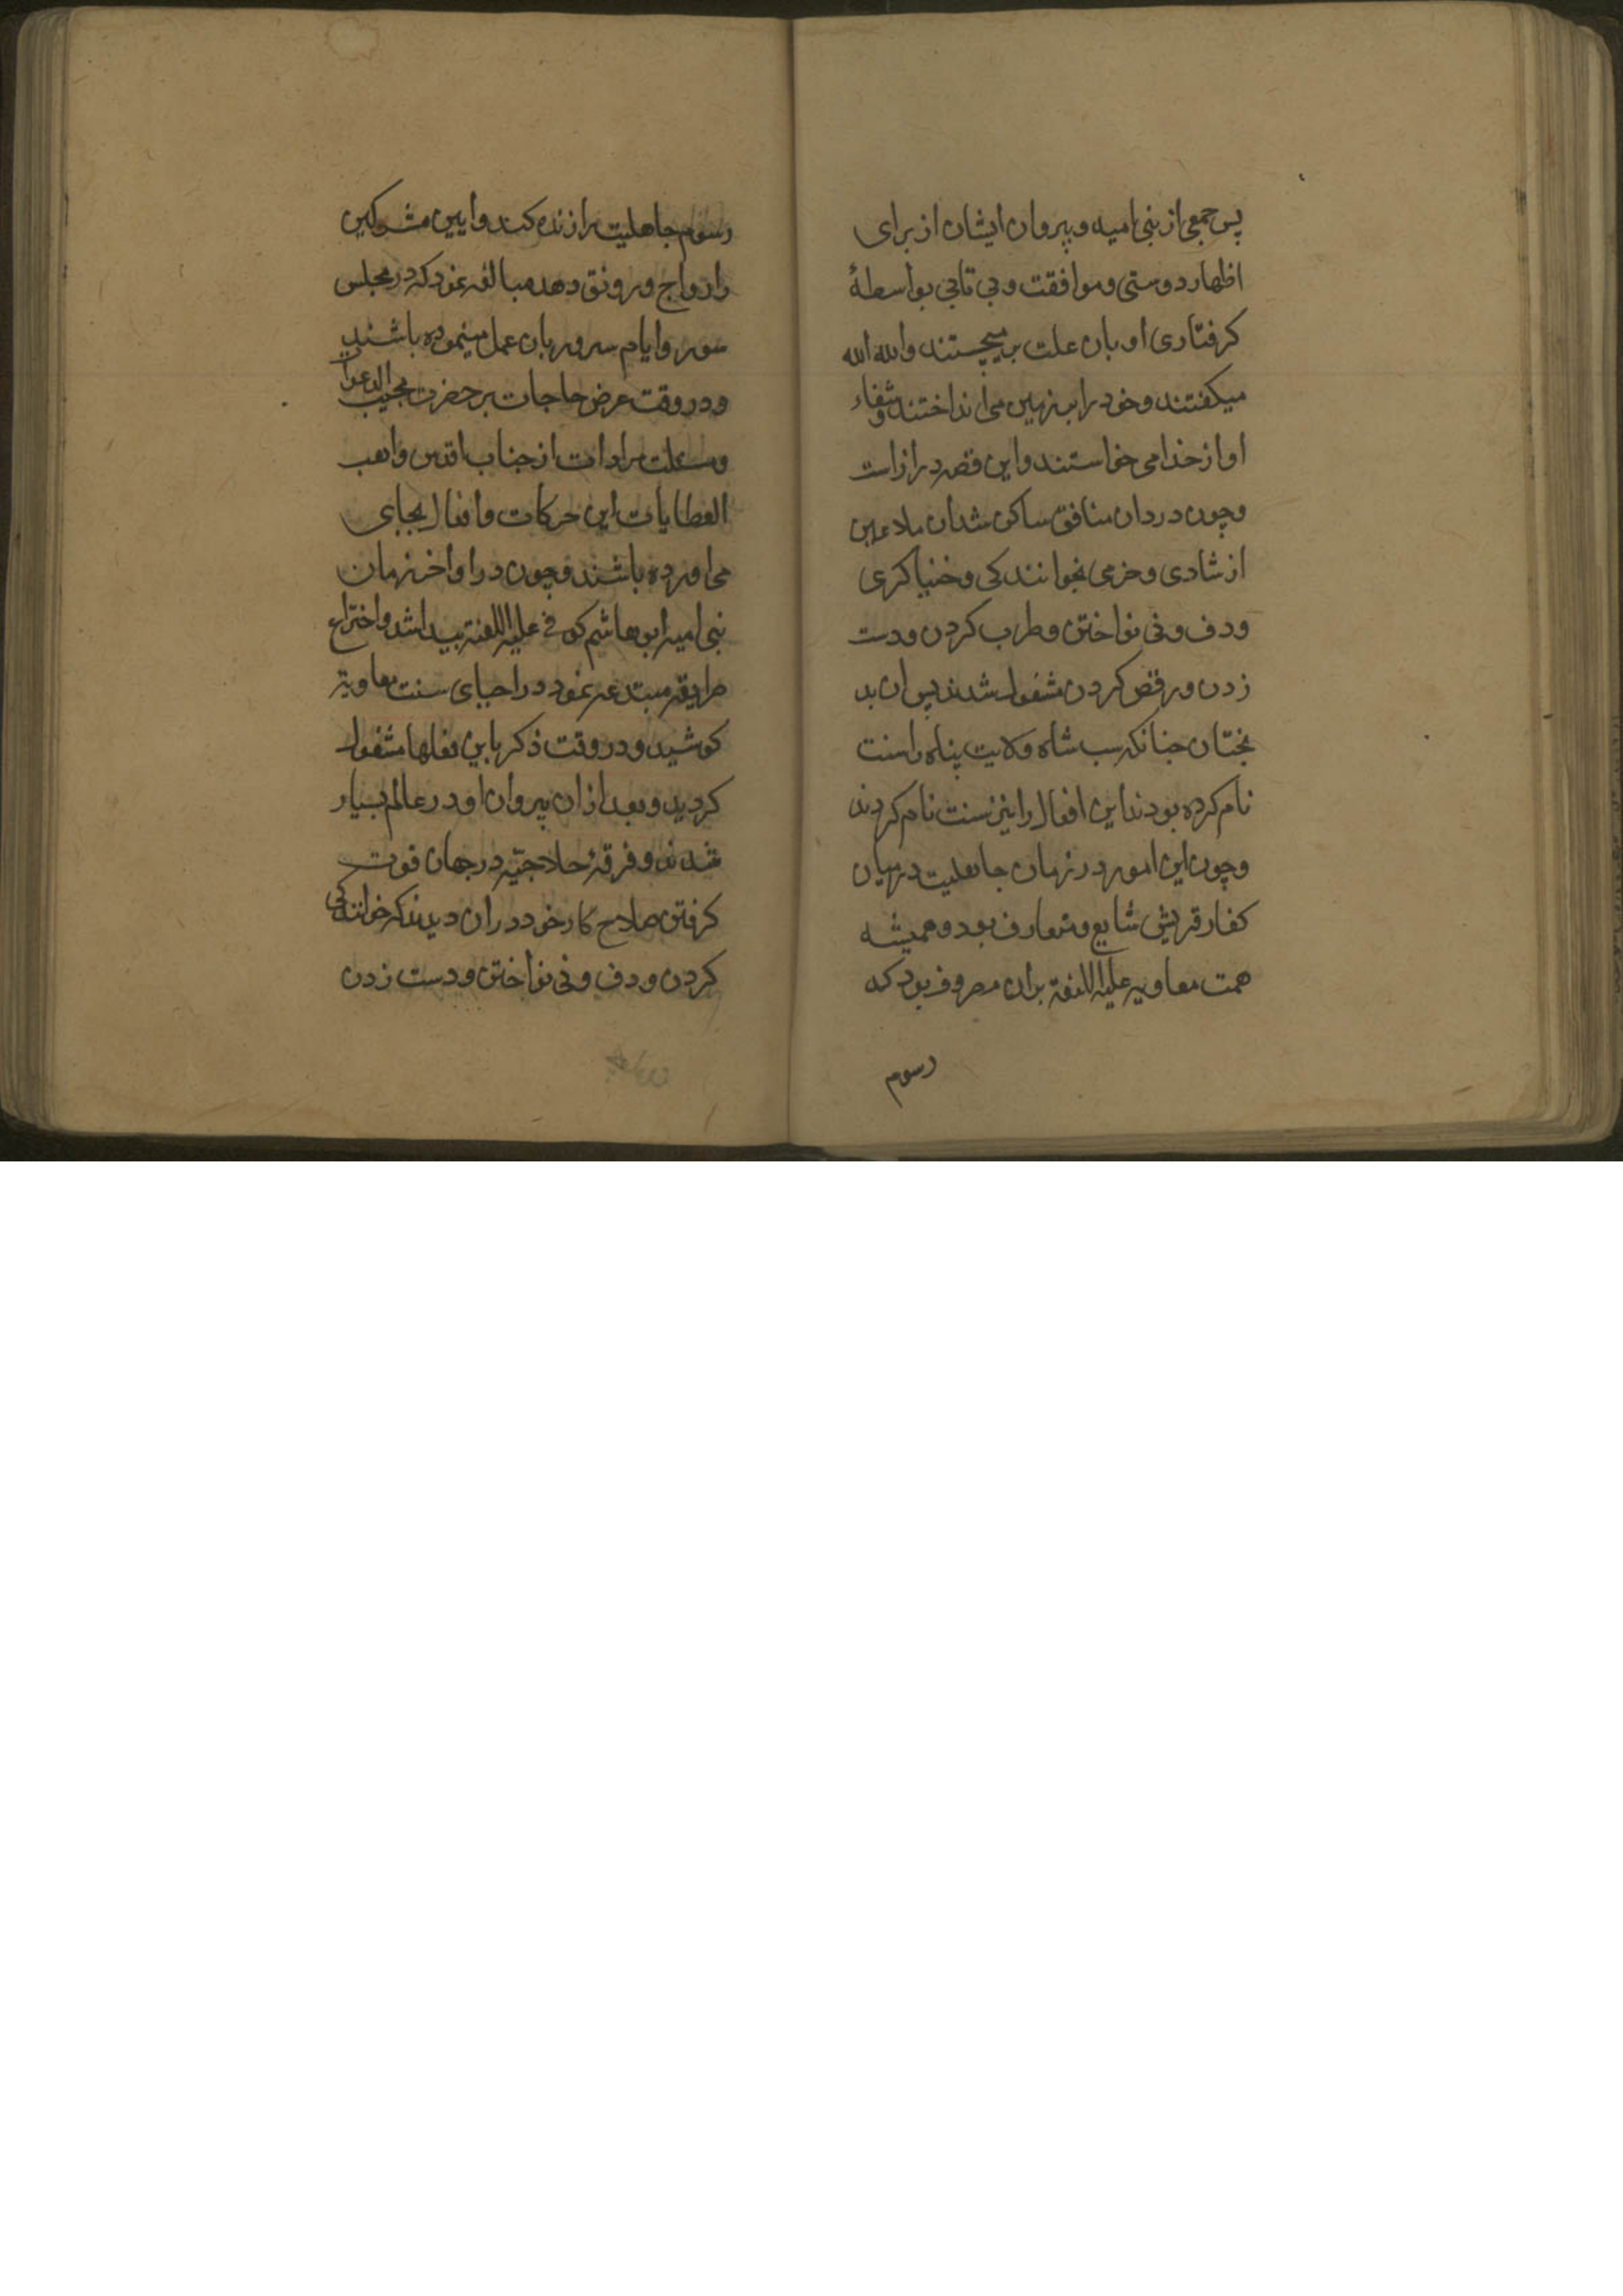 پس جمعی از بنی امیه و پیروان ایشان از برای
اظهار دوستی و موافقت و بی تابی بواسطهٔ
کرفتاری او بان علت بر میجستند والله الله
میکفتند و خود را بزمین می انداختند و شفاء
او از خدا می خواستند و این قصه دراز است
و چون درد ان منافق ساکن شد ان ملاعین
از شادی و خرمی بخوانندکی و خنیاکری
و دف و نی نواختن و طرب کردن و دست
زدن و رقص کردن مشغول شدند پس ان بد
بختان چنانکه سب شاه ولایت پناه را سنت
نام کرده بودند این افعال را نیز سنت نام کردند
و چون این امور در زمان جاهلیت در میان
کفار قریش شایع و متعارف بود و همیشه
همت معاویه علیه اللعنة بران مصروف بود که
رسوم
رسوم جاهلیت را زنده کند و ایین مشرکین
را رواج و رونق دهد مبالغه نمود که در مجلس
سور و ایام سرور بان عمل مینموده باشند
و در وقت عرض حاجات بر حضرت مجیب الدعوات
و مسئلت مرادات از جناب اقدس واهب
العطایات این حرکات و افعال بجای
می اورده باشند و چون در اواخر زمان
بنی امیه ابو هاشم کوفی علیه اللعنة پیدا شد و اختراع
طریقه مبتدعه نمود در احیای سنت معاویة
کوشید و در وقت ذکر باین فعلها مشغول
کردید و بعد از ان پیروان او در عالم بسیار
شدند و فرقهٔ حلاجیّه در جهان قوت
کرفتن صلاح کار خود در ان دیدند که خوانندکی
کردن و دف و نی نواختن و دست زدن